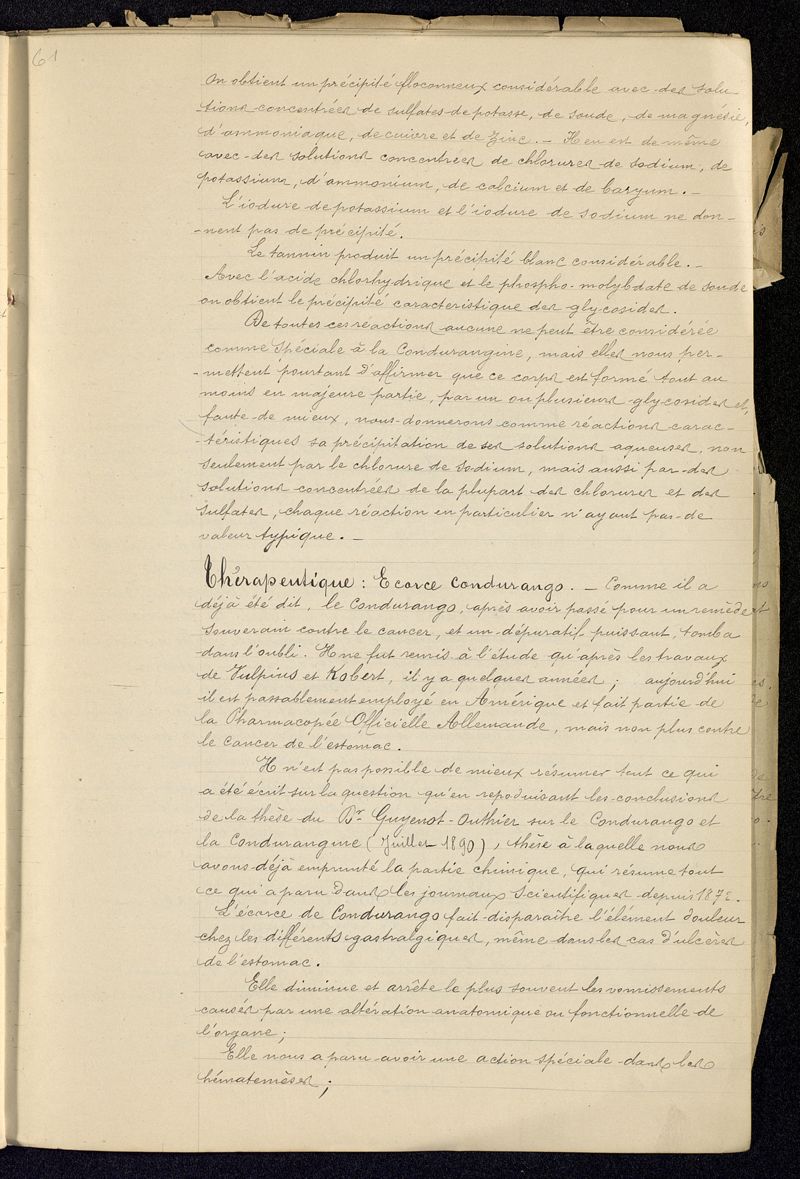 61
On obtient un précipité floconneux considérable avec des solu
tions concentrées de sulfates de potasse, de soude, de magnésie,
d'ammoniaque, de cuivre et de zinc. — Il en est de même
avec des solutions concentrées de chlorures de sodium, de
potassium, d'ammonium, de calcium et de baryum. —
L'iodure de potassium et l'iodure de sodium ne don-
-nent pas de précipité.
Le tannin produit un précipité blanc considérable. —
Avec l'acide chlorhydrique et le phospho-molybdate de soude
on obtient le précipité caractéristique des glycosides.
De toutes ces réactions aucune ne peut être considérée
comme spéciale à la Condurangine, mais elles nous per-
-mettent pourtant d'affirmer que ce corps est formé tout au
moins en majeure partie, par un ou plusieurs glycosides et,
faute de mieux, nous donnerons comme réactions carac-
-téristiques sa précipitation de ses solutions aqueuses, non
seulement par le chlorure de sodium, mais aussi par des
solutions concentrées de la plupart des chlorures et des
sulfates, chaque réaction en particulier n'ayant pas de
valeur typique. —
Thérapeutique : Ecorce Condurango. — Comme il a
déjà été dit, le Condurango, après avoir passé pour un remède
souverain contre le cancer, et un dépuratif puissant, tomba
dans l'oubli. Il ne fut remis à l'étude qu'après les travaux
de Vulpius et Kobert, il y a quelques années ; aujourd'hui
il est passablement employé en Amérique et fait partie de
la Pharmacopée Officielle Allemande, mais non plus contre
le cancer de l'estomac.
Il n'est pas possible de mieux résumer tout ce qui
a été écrit sur la question qu'en reproduisant les conclusions
de la thèse du Dr Guyenot-Outhier sur le Condurango et
la Condurangine (Juillet 1890), thèse à laquelle nous
avons déjà emprunté la partie chimique, qui résume tout
ce qui a paru dans les journaux scientifiques depuis 1872.
L'écorce de Condurango fait disparaître l'élément douleur
chez les différents gastralgiques, même dans les cas d'ulcères
de l'estomac.
Elle diminue et arrête le plus souvent les vomissements
causés par une altération anatomique ou fonctionnelle de
l'organe ;
Elle nous a paru avoir une action spéciale dans les
hématémèses ;